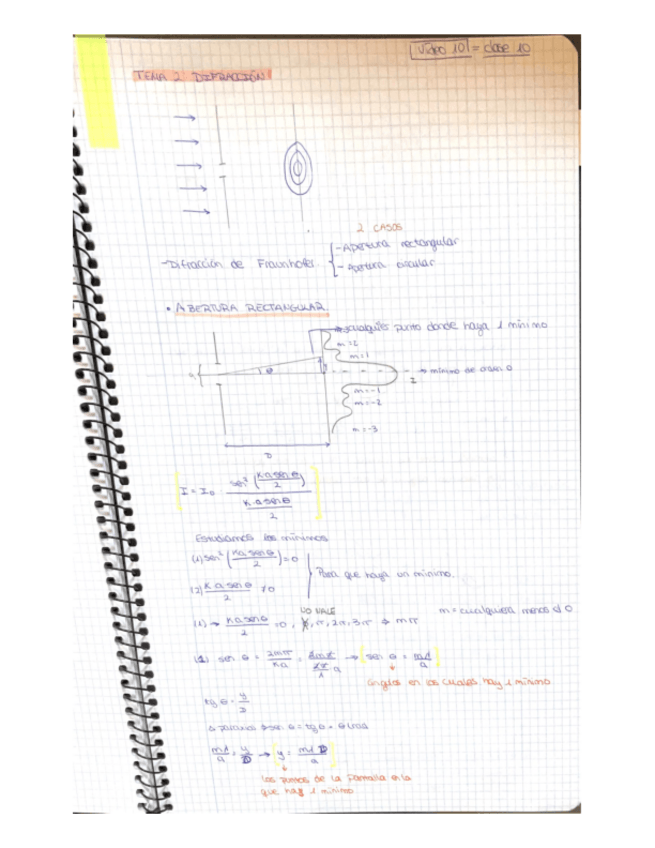 Video 10 = clase 10
TEMA 2 DIFRACCIÓN
2 CASOS
-Difracción de Fraunhofer
-Apertura rectangular
- Apertura circular
• ABERTURA RECTANGULAR
cualquier punto donde haya 1 mínimo
m=2
m=1
a
θ
y
→ mínimo de orden 0
I
m=-1
m=-2
m=-3
D
I = I₀ · sen² (K a sen θ / 2) / (K a sen θ / 2)
Estudiamos los mínimos
(1) sen² (Ka senθ / 2) = 0
(2) K a sen θ / 2 ≠ 0
Para que haya un mínimo.
NO VALE
m = cualquiera menos el 0
(1) → K a senθ / 2 = 0, π, 2π, 3π → mπ
sen θ = 2mπ / Ka → sen θ = mλ / a
ángulos en los cuales hay 1 mínimo
tg θ = y / D
sen θ = tg θ = θ rad
mλ / a = y / D → y = mλ D / a
los puntos de la pantalla en la
que hay 1 mínimo